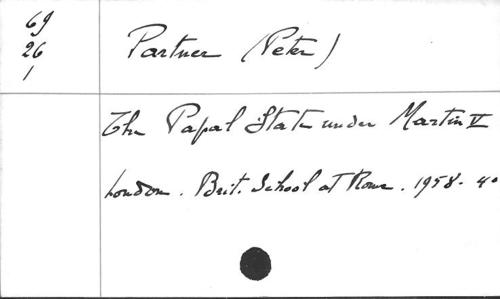 69
26
1
Partner (Peter)
The Papal State under Martin V
London. Brit. School at Rome. 1958. 4°